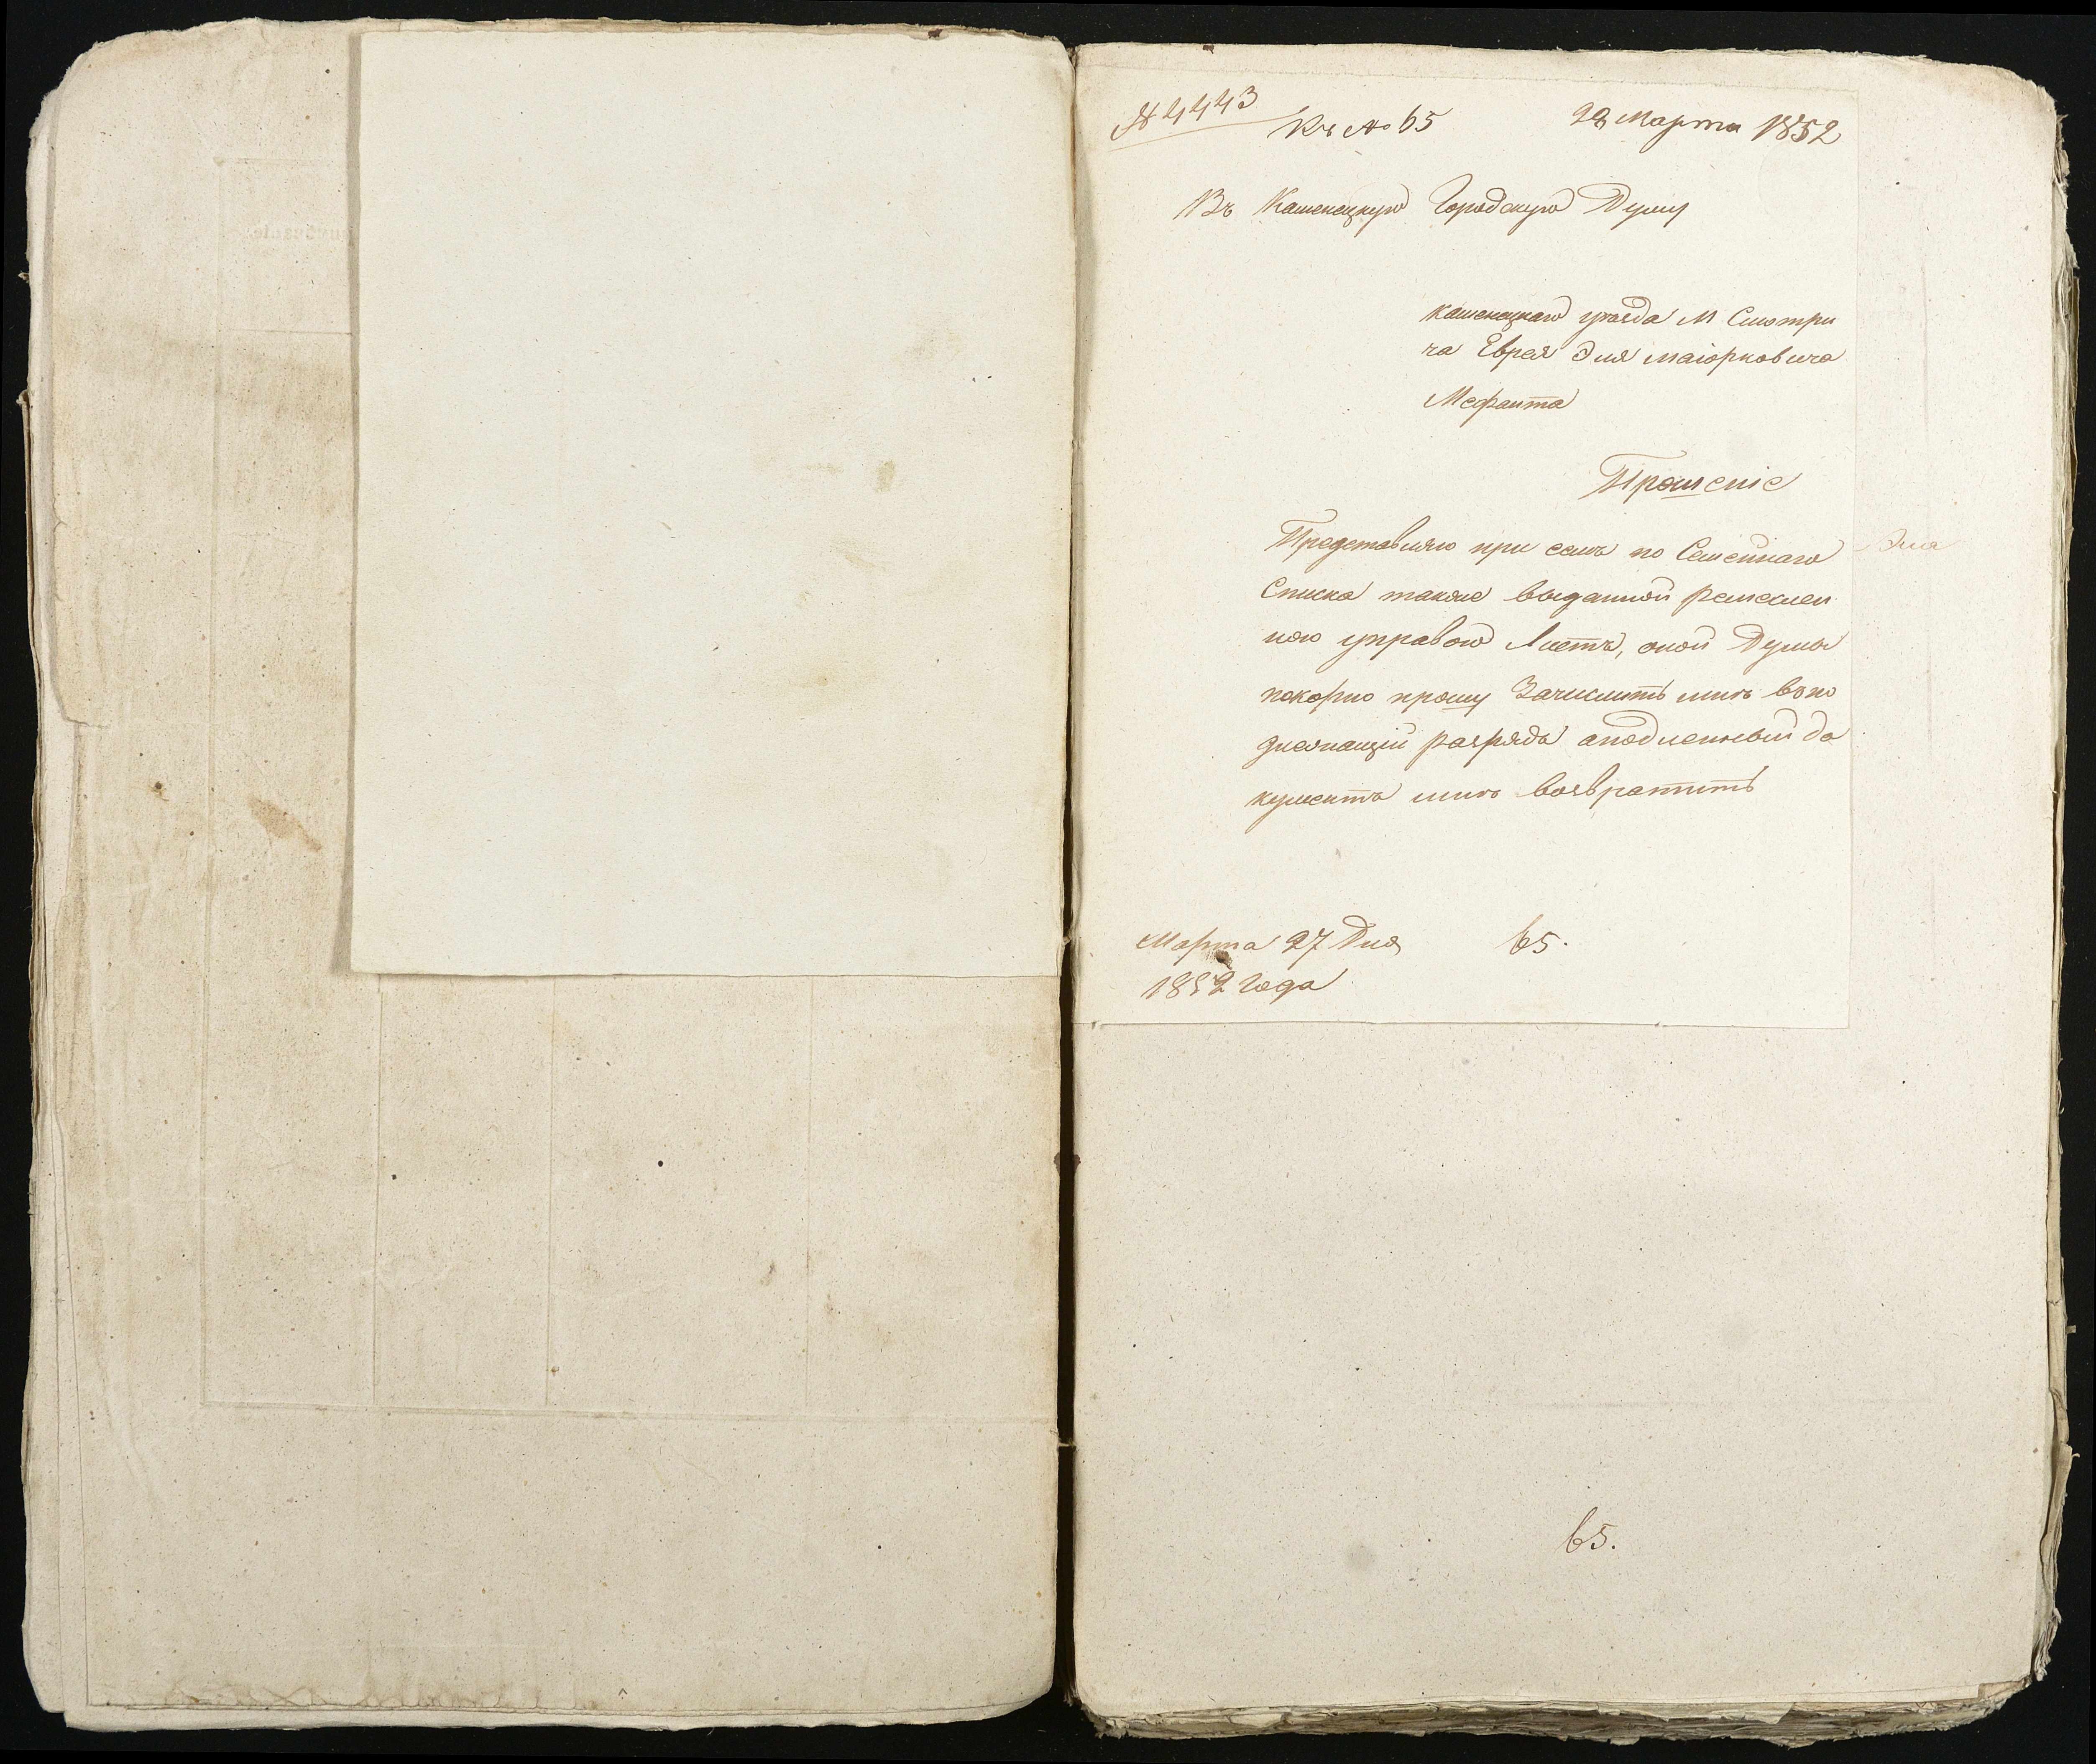 № 4443
Къ № 65
28 Марта 1852
Въ Каменецкую Городскую Думу
Каменецкаго уезда М Смотри
ча Еврея Эля Маіорковича
Прошеніе
Представляю при семъ по Семейнаго
Списка также выданной ремеслен
ною управою Листъ, оной Думы
покорно прошу Зачислить мнѣ въ по
длежащій разрядъ а подленный до
кументъ мнѣ возвратить
Марта 27 Дня
65.
1852 года
65.